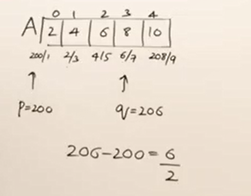 0 1 2 3 4
A 2 4 6 8 10
200/1 2/3 4/5 6/7 208/9
p=200 q=206
206-200=6
2